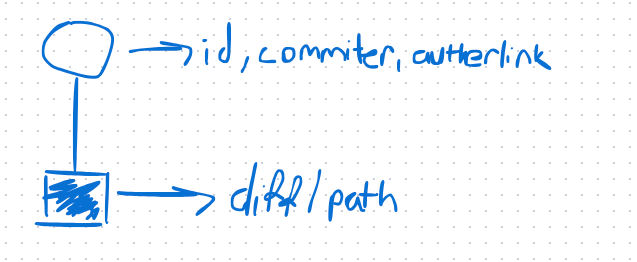 id, commiter, autherlink
diff/path